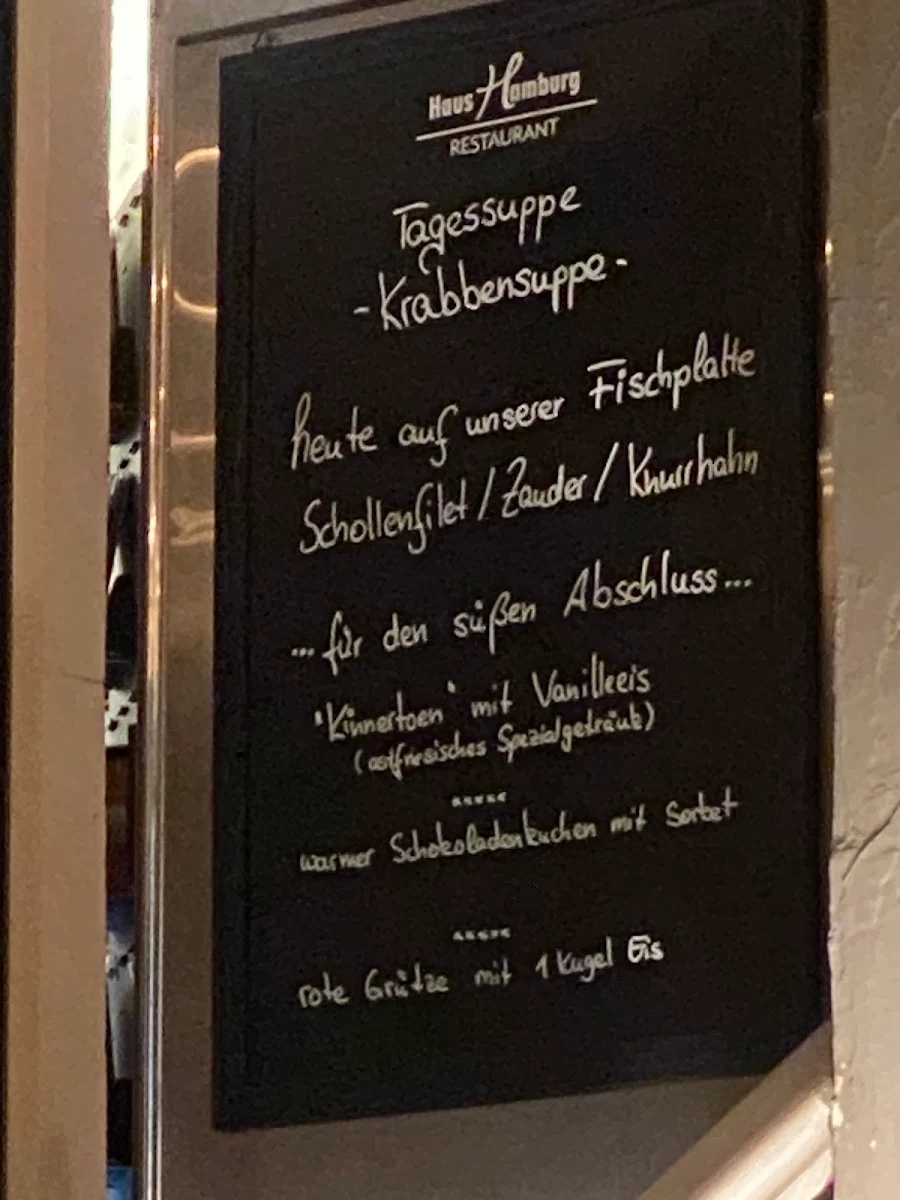 Haus Hamburg
RESTAURANT
Tagessuppe
-Krabbensuppe-
heute auf unserer Fischplatte
Schollenfilet / Zander / Knurrhahn
...für den süßen Abschluss...
"Kinnertoen" mit Vanilleeis
(ostfriesisches Spezialgetränk)
*****
warmer Schokoladenkuchen mit Sorbet
*****
rote Grütze mit 1 Kugel Eis